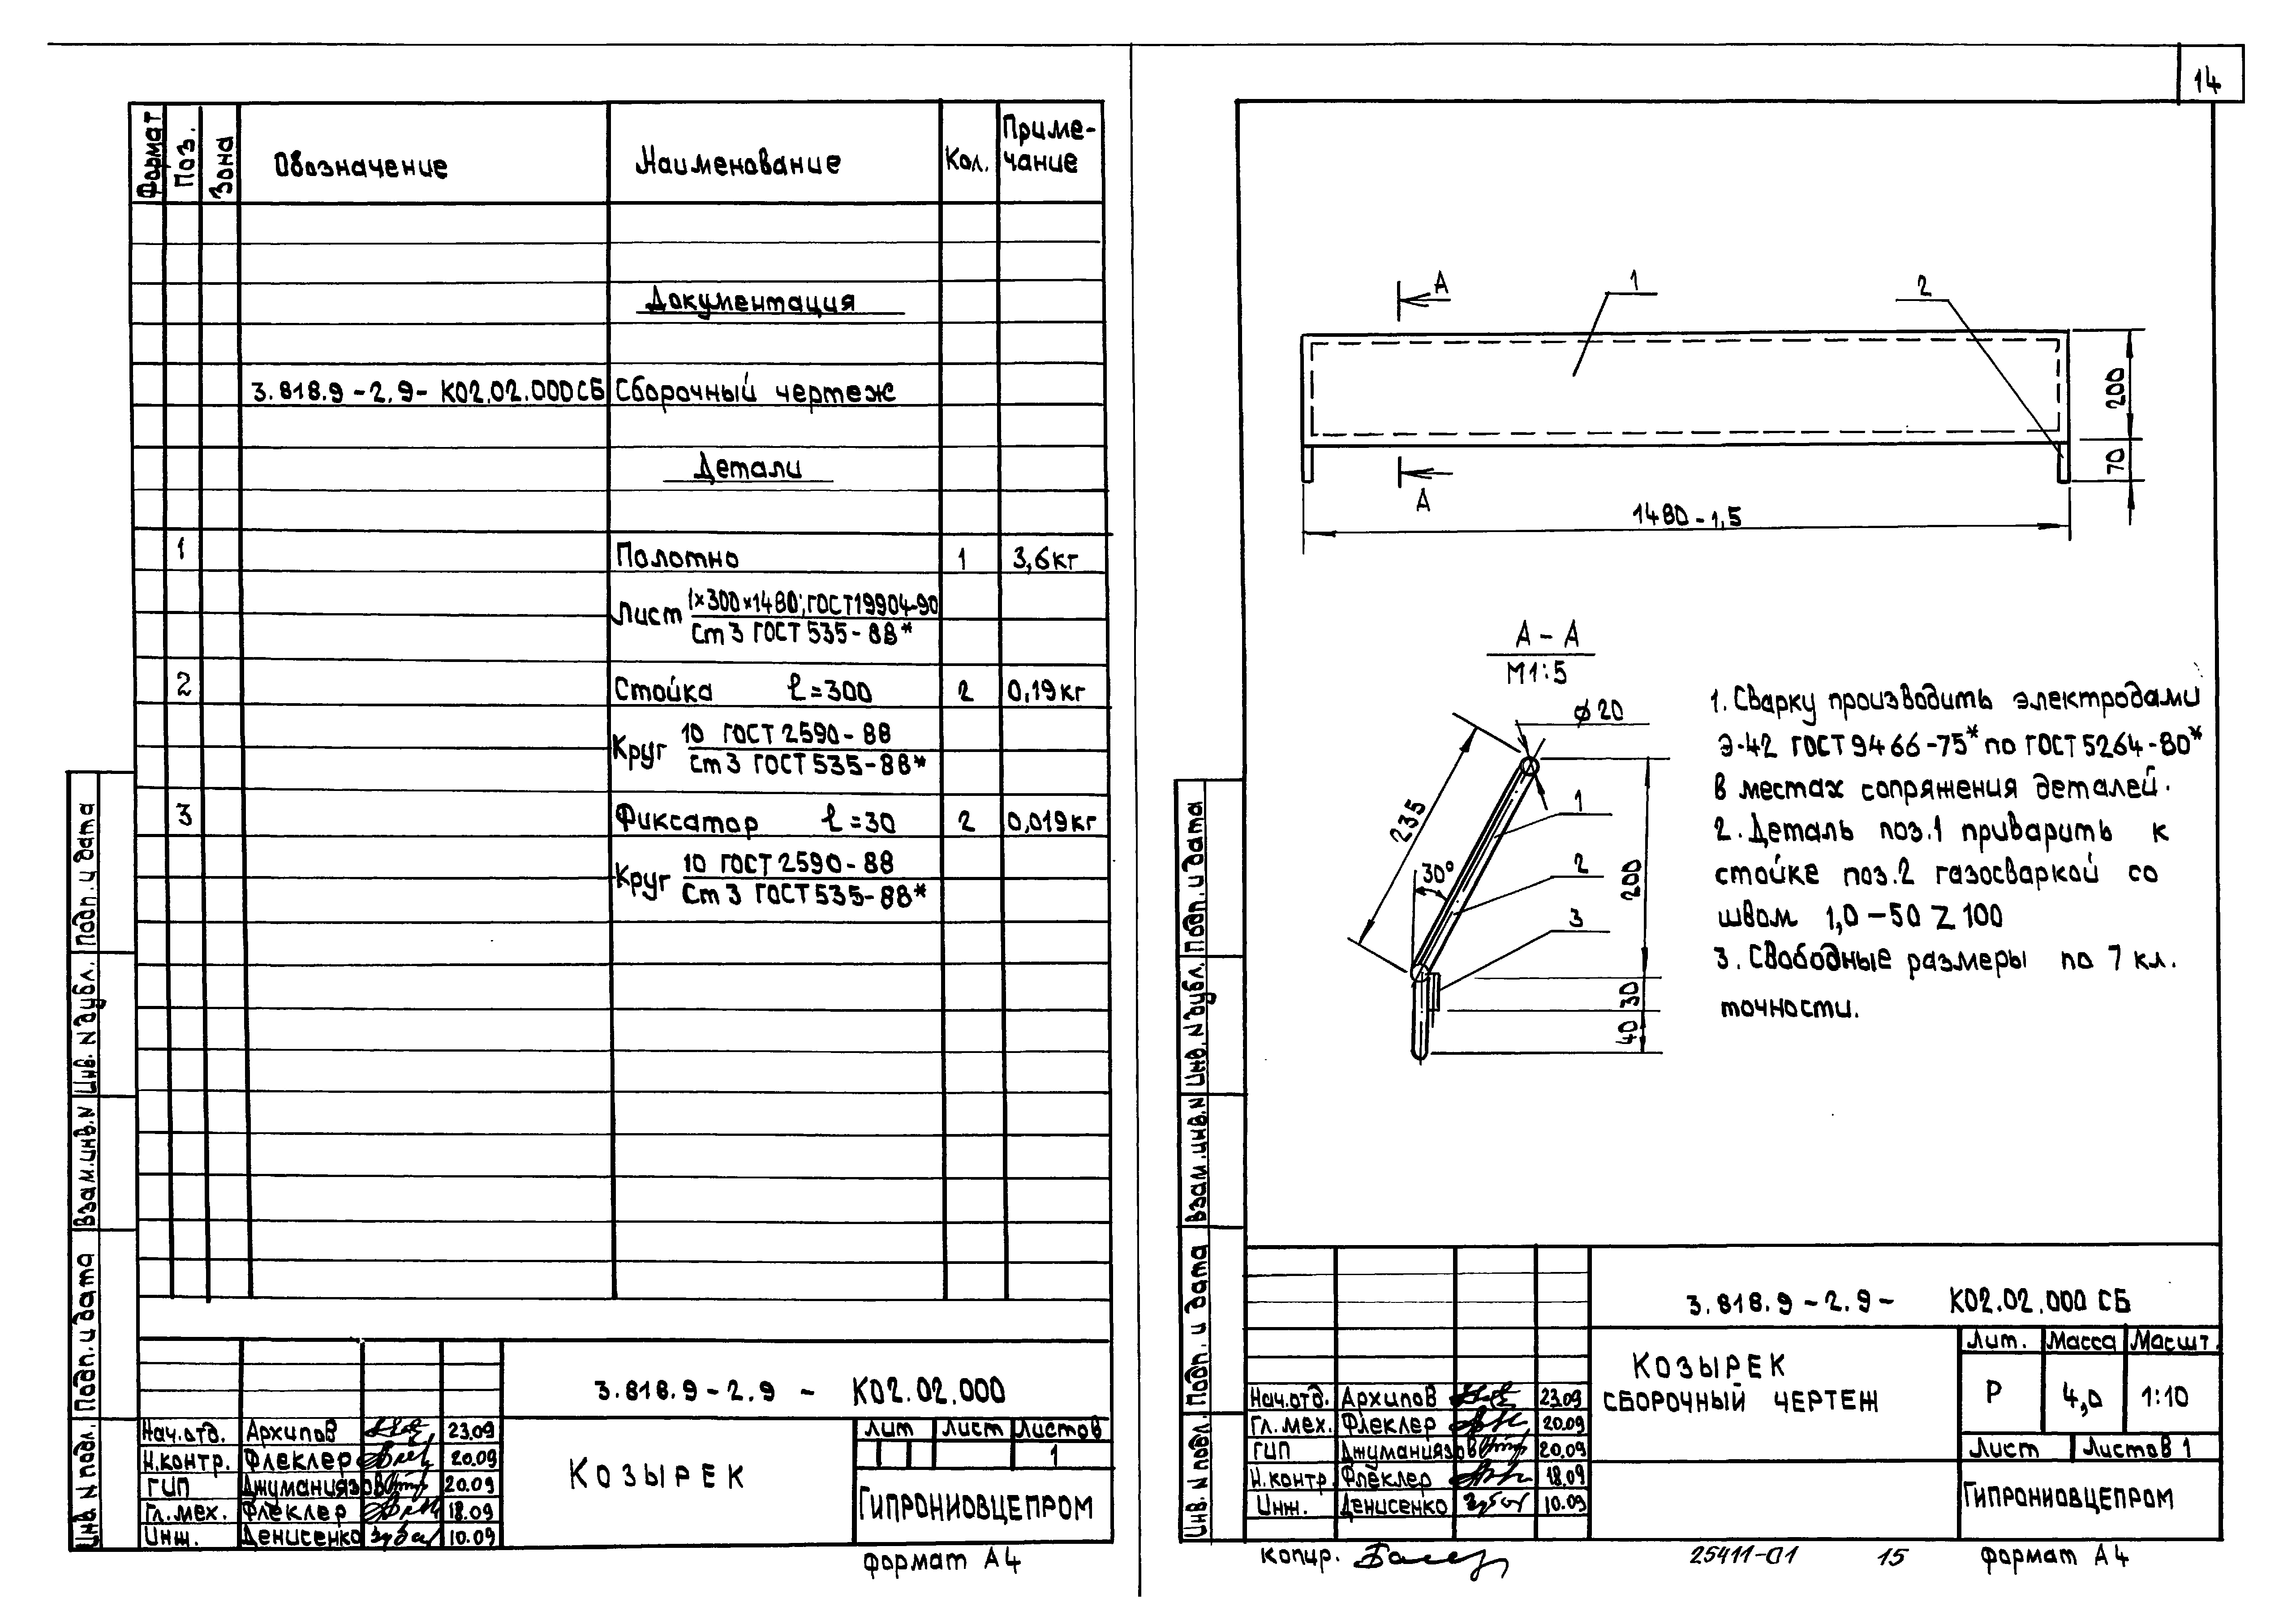 14
Формат
Поз.
Зона
Обозначение
Наименование
Кол.
Приме-
чание
Документация
3.818.9-2.9- К02.02.000СБ Сборочный чертеж
Детали
1 Полотно 1 3,6кг
Лист 1×300×1480; ГОСТ19904-90
Ст 3 ГОСТ 535-88*
2 Стойка ℓ=300 2 0,19кг
Круг 10 ГОСТ 2590-88
Ст 3 ГОСТ 535-88*
3 Фиксатор ℓ=30 2 0,019кг
Круг 10 ГОСТ 2590-88
Ст 3 ГОСТ 535-88*
Подп. и дата
Инв. N дубл.
Взам. инв. N
Подп. и дата
Инв. N подл.
3.818.9-2.9 - К02.02.000
Нач.отд. Архипов 23.09
Н.контр. Флеклер 20.09
ГИП Джуманиязов 20.09
Гл.мех. Флеклер 18.09
Инж. Денисенко 10.09
КОЗЫРЕК
Лит Лист Листов
1
ГИПРОНИОВЦЕПРОМ
формат А4
А
1
2
200
70
А
1480-1,5
А-А
М1:5
⌀20
235
30°
1
2
3
200
30
40
1. Сварку производить электродами
Э-42 ГОСТ 9466-75* по ГОСТ 5264-80*
в местах сопряжения деталей.
2. Деталь поз.1 приварить к
стойке поз.2 газосваркой со
швом 1,0-50 Z 100
3. Свободные размеры по 7 кл.
точности.
Подп. и дата
Инв. N дубл.
Взам. инв. N
Подп. и дата
Инв. N подл.
3.818.9-2.9- К02.02.000 СБ
КОЗЫРЕК
СБОРОЧНЫЙ ЧЕРТЕЖ
Лит. Масса Масшт.
Р 4,0 1:10
Лист Листов 1
Нач.отд. Архипов 23.09
Гл.мех. Флеклер 20.09
ГИП Джуманиязов 20.09
Н.контр. Флеклер 18.09
Инж. Денисенко 10.09
ГИПРОНИОВЦЕПРОМ
копир.
25411-01 15
формат А4